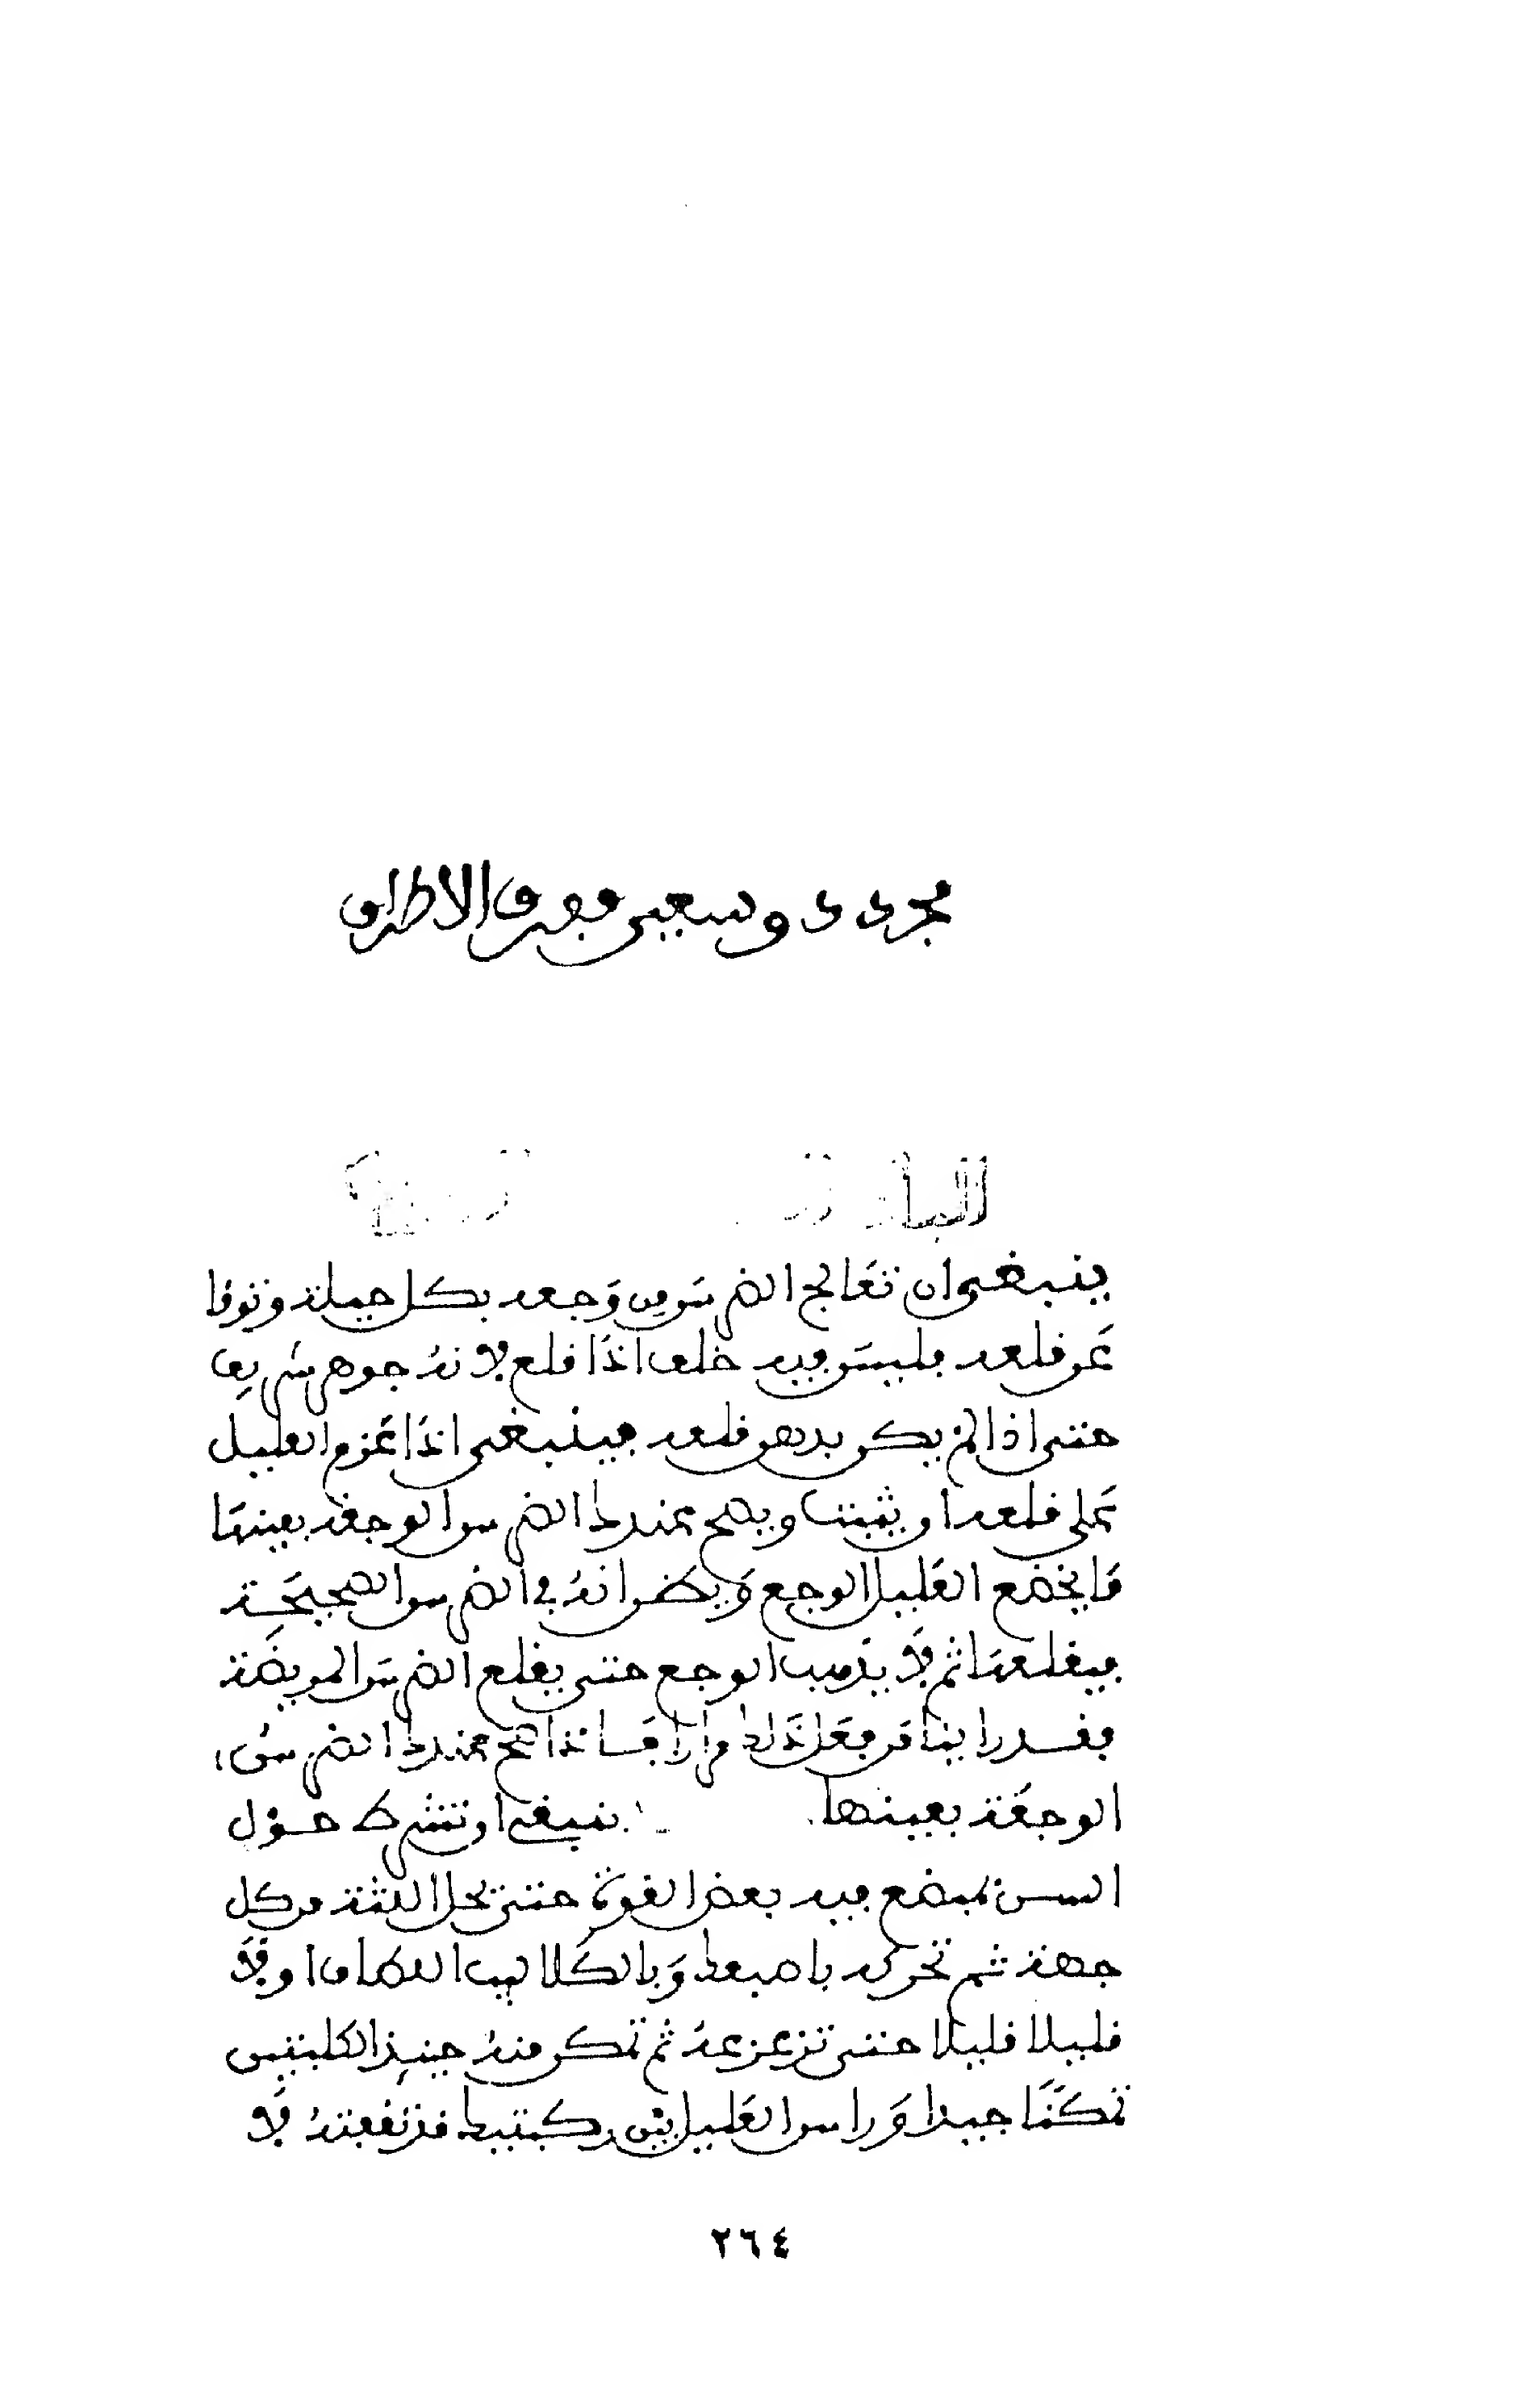 مجردى ى وسعين مفرق الاطراف
الباب
ينبغي ان تعالج الضرس من وجعه بكل حيلة وتوفا
عن قلعه فليس فيه خلف اذا قلع لانه جوهر شريف
حتى اذا لم يكن بد من قلعه فينبغي اذا عزم العليل
على قلعه ان يثبت ويصح عندك الضرس الوجعة بعينها
ما يخدع العليل الوجع ويظن انه في الضرس الصحيحة
فيقلعها ثم لا يذهب الوجع حتى يقلع الضرس المريضة
فقد راينا من فعل ذلك مرارا فاذا صح عندك الضرس
الوجعة بعينها ينبغي ان تشرط حول
السن بمبضع فيه بعض القوة حتى تحل اللثة من كل
جهة ثم تحركه باصبعك وبالكلاليب اللطاف اولا
قليلا قليلا حتى تزعزعه ثم تمكن منه حينئذ الكلبتين
تمكنا جيدا وراس العليل بين ركبتيك قد ثقفته لا
٢٦٤